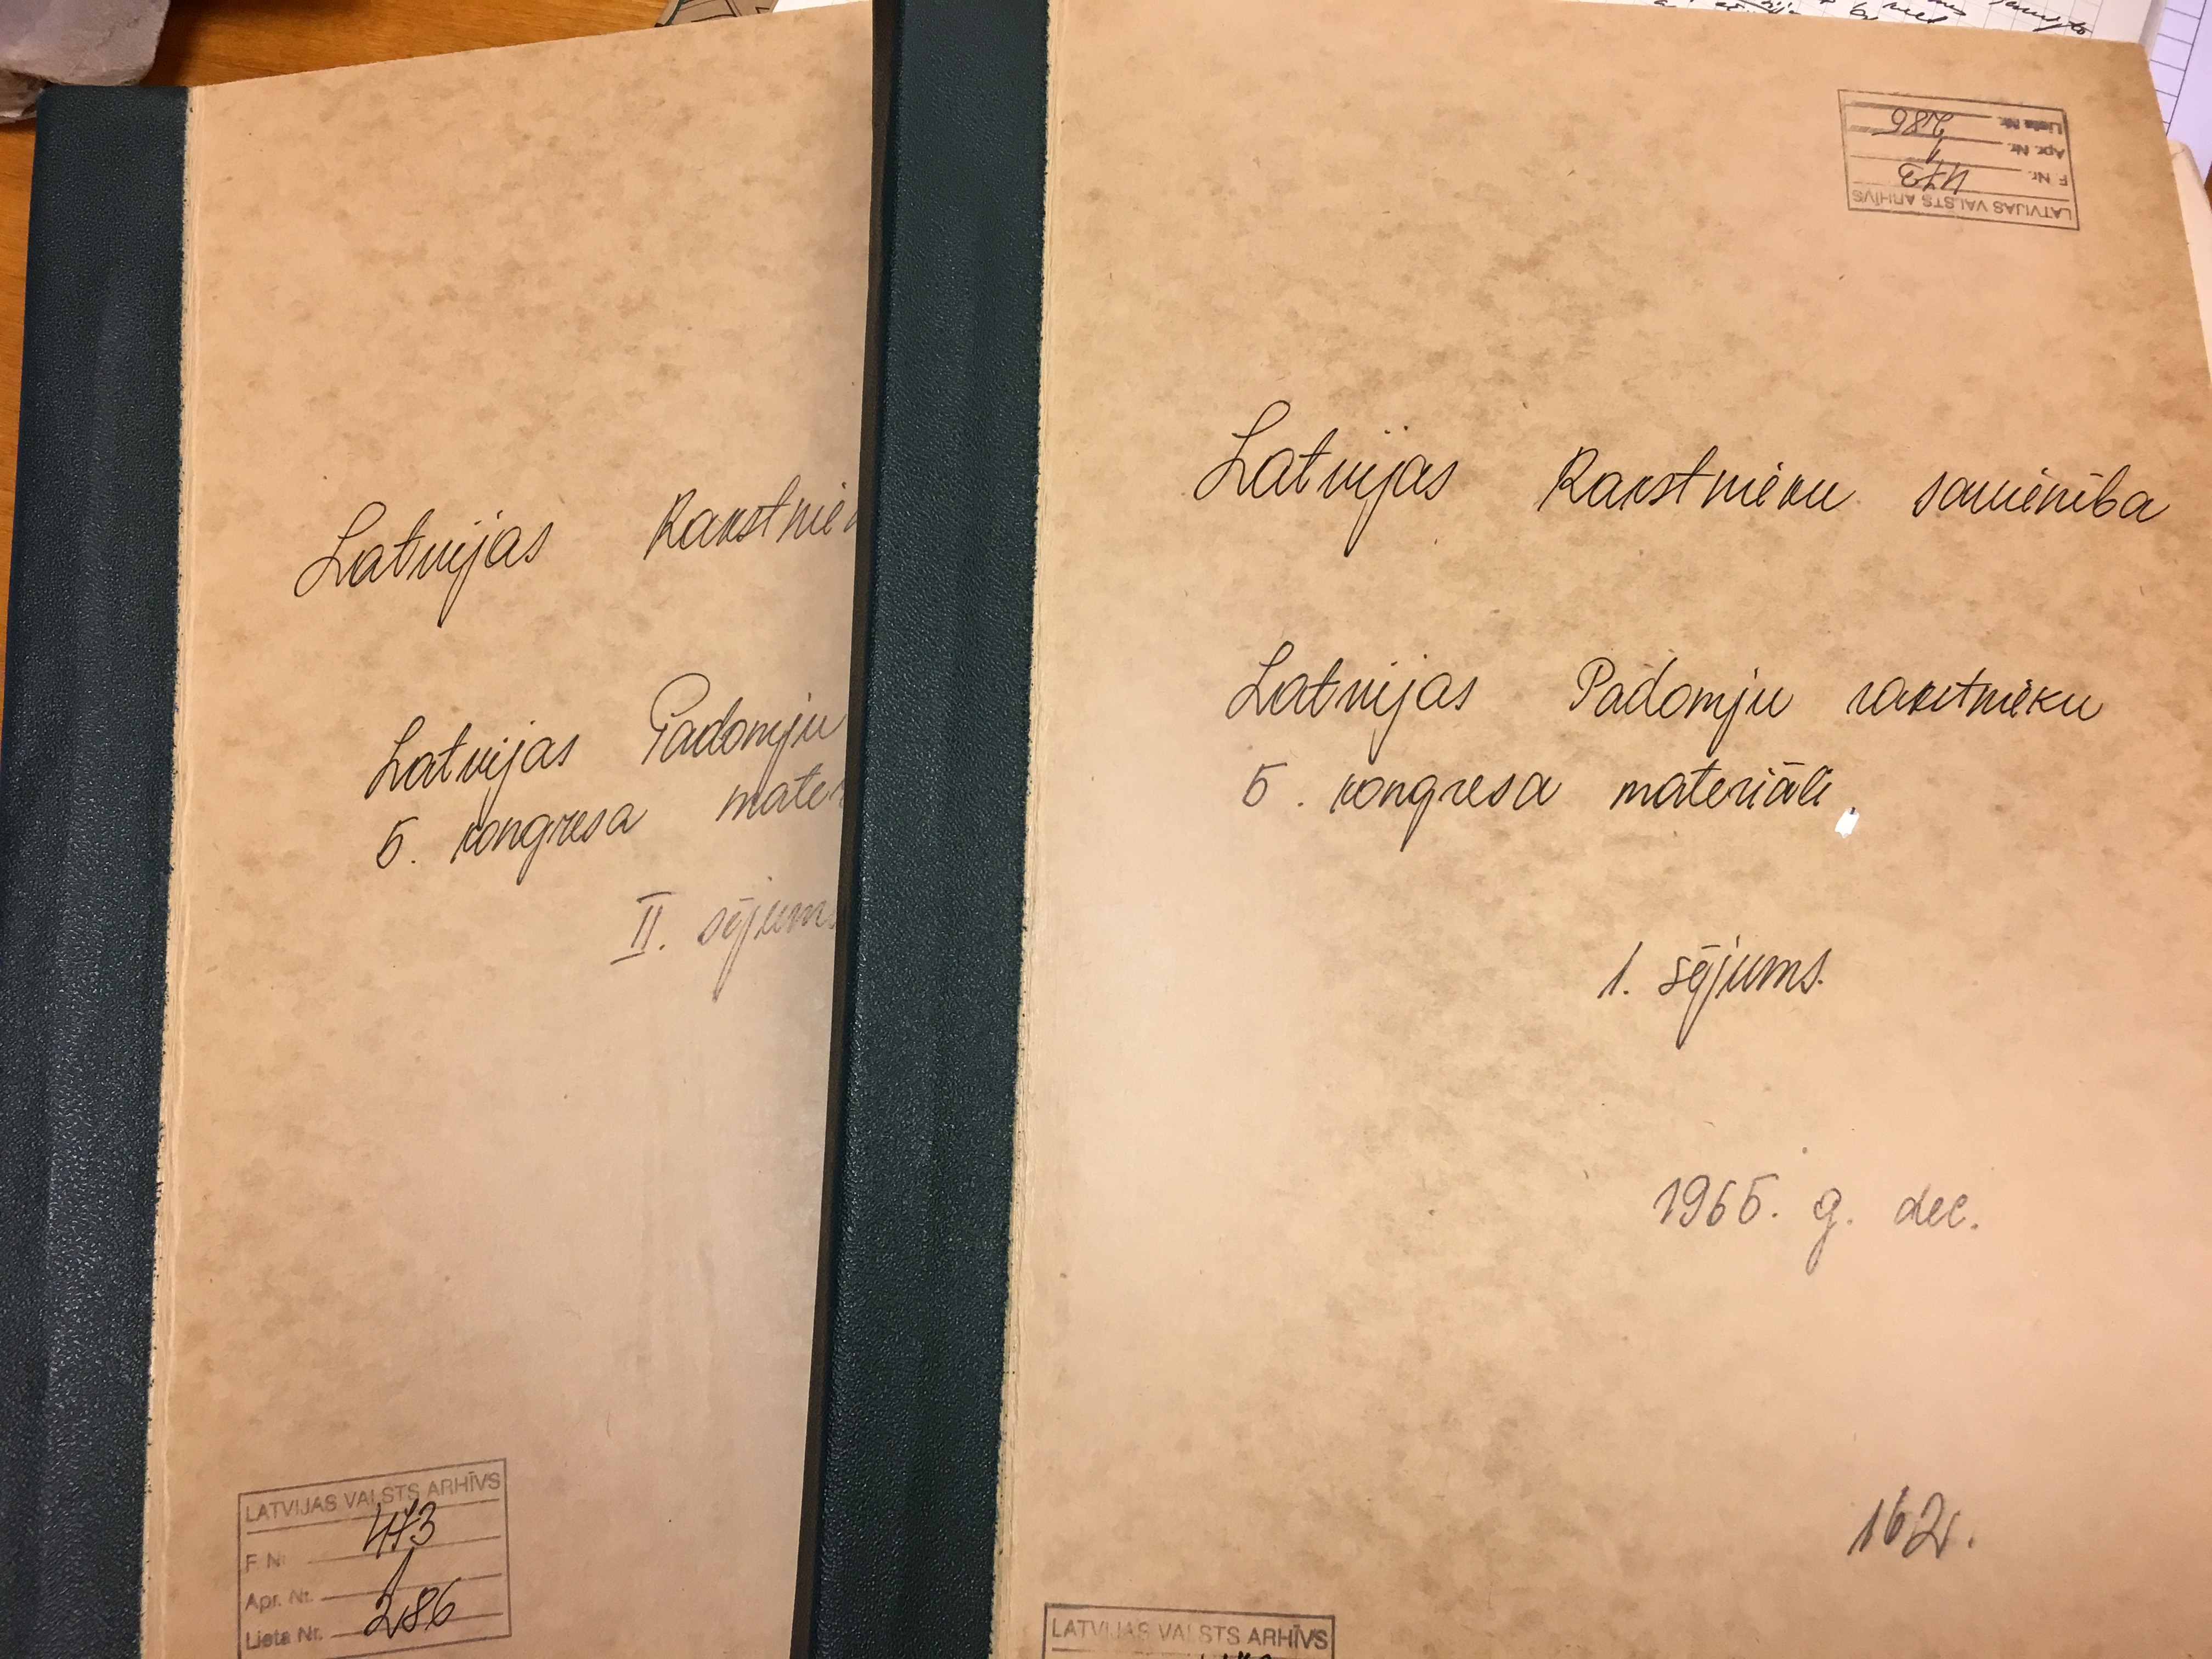 Latvijas Rakstniek
Latvijas Padomju
5. kongresa mater
II. sējums
LATVIJAS VALSTS ARHĪVS
F. Nr. 473
Apr. Nr. 1
Lieta Nr. 286
LATVIJAS VALSTS ARHĪVS
F. Nr. 473
Apr. Nr. 1
Lieta Nr. 286
Latvijas Rakstnieku savienība
Latvijas Padomju rakstnieku
5. kongresa materiāli.
1. sējums.
1965. g. dec.
162.
LATVIJAS VALSTS ARHĪVS